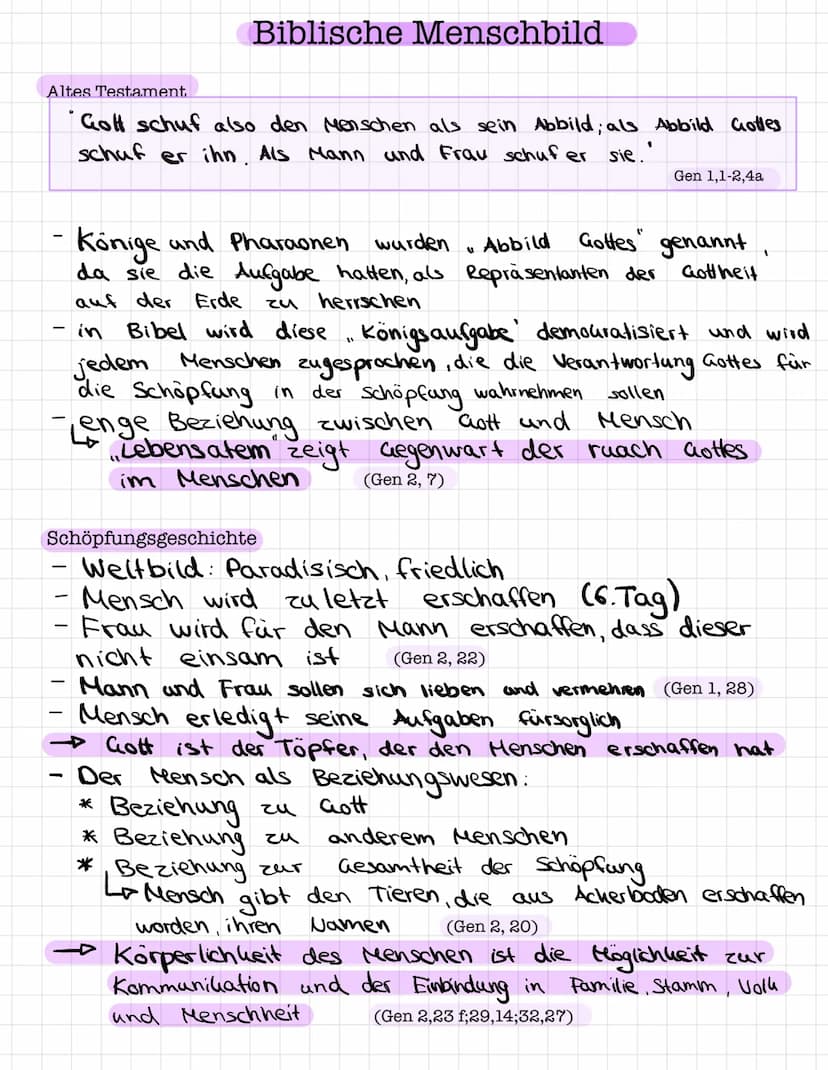 Biblische Menschbild
Altes Testament
"Gott schuf also den Menschen als sein Abbild; als Abbild Gottes
schuf er ihn. Als Mann und Frau schuf er sie."
Gen 1,1-2,4a
- Könige und Pharaonen wurden „Abbild Gottes" genannt,
da sie die Aufgabe hatten, als Repräsentanten der Gottheit
auf der Erde zu herrschen
- in Bibel wird diese „Königsaufgabe" demokratisiert und wird
jedem Menschen zugesprochen, die die Verantwortung Gottes für
die Schöpfung in der Schöpfung wahrnehmen sollen
- enge Beziehung zwischen Gott und Mensch
↳ „Lebensatem" zeigt Gegenwart der ruach Gottes
im Menschen (Gen 2, 7)
Schöpfungsgeschichte
- Weltbild: Paradisisch, friedlich
- Mensch wird zuletzt erschaffen (6.Tag)
- Frau wird für den Mann erschaffen, dass dieser
nicht einsam ist (Gen 2, 22)
- Mann und Frau sollen sich lieben und vermehren (Gen 1, 28)
- Mensch erledigt seine Aufgaben fürsorglich
→ Gott ist der Töpfer, der den Menschen erschaffen hat
- Der Mensch als Beziehungswesen:
* Beziehung zu Gott
* Beziehung zu anderem Menschen
* Beziehung zur Gesamtheit der Schöpfung
↳ Mensch gibt den Tieren, die aus Ackerboden erschaffen
worden, ihren Namen (Gen 2, 20)
→ Körperlichkeit des Menschen ist die Möglichkeit zur
Kommunikation und der Einbindung in Familie, Stamm, Volk
und Menschheit (Gen 2,23 f;29,14;32,27)